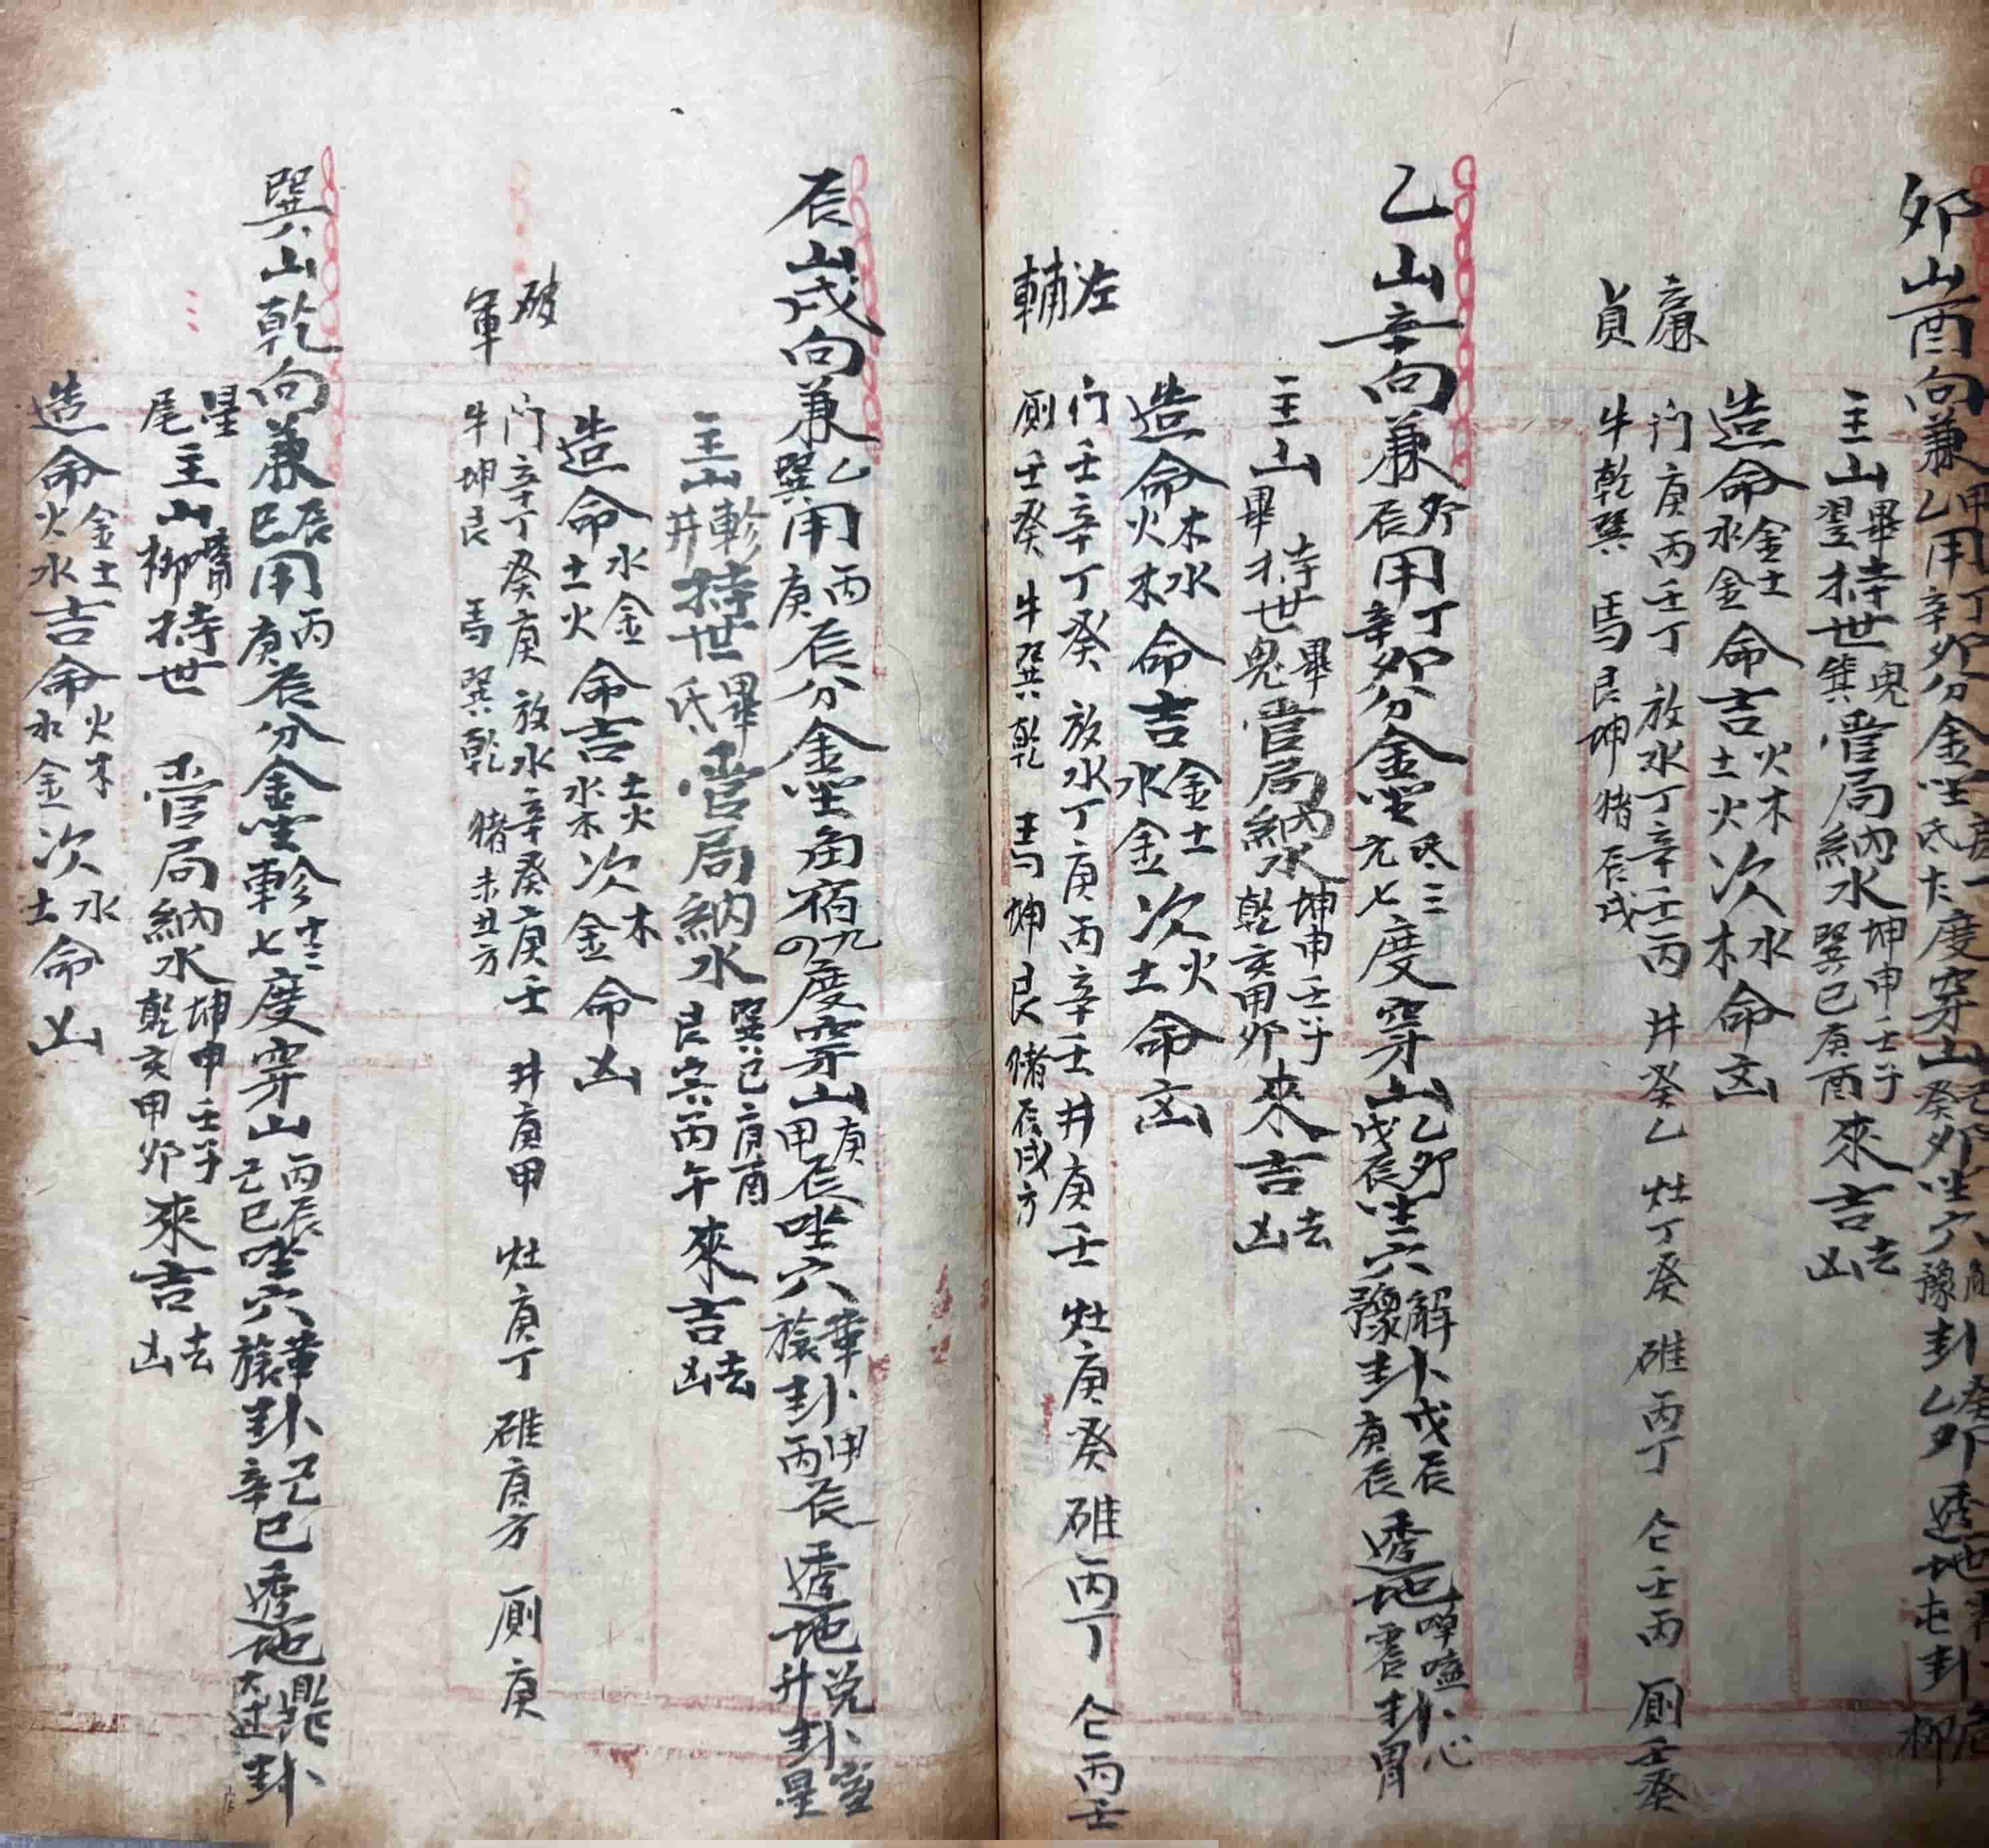 卯山酉向兼甲乙用丁辛卯分金坐度穿山癸卯坐穴豫卦癸乙卯透地屯卦柳
主山畢翌持世鬼箕管局納水坤申壬子巽巳庚酉來吉去凶
造命金土水金命吉火木土火次水木命凶
廉貞 门庚丙壬丁 放水丁辛壬丙 井癸乙 灶丁癸 碓丙丁 仓壬丙 厕壬癸
牛乾巽 馬艮坤 猪辰戌
乙山辛向兼卯辰用丁辛卯分金坐氐三亢七度穿山乙卯戊辰坐穴解豫卦戊辰庚辰透地噬嗑震卦心胃
主山畢持世畢鬼管局納水坤申壬子乾亥甲卯來吉去凶
造命木水火木命吉金土水金次火土命凶
左輔 门壬辛丁癸 放水丁庚丙辛壬 井庚壬 灶庚癸 碓丙丁 仓丙壬
厕壬癸 牛巽乾 馬坤艮 猪辰戌方
辰山戌向兼乙巽用丙庚辰分金坐角宿九の度穿山庚甲辰坐穴革旅卦甲丙辰透地兌升卦室星
主山軫井持世畢氐管局納水巽巳庚酉艮寅丙午來吉去凶
造命水金土火命吉土火水木次木金命凶
破軍 门辛丁癸庚 放水辛癸庚壬 井庚甲 灶庚丁 碓庚方 厕庚
牛坤艮 馬巽乾 猪未丑方
巽山乾向兼辰巳用丙庚辰分金坐軫十二七度穿山丙辰己巳坐穴革旅卦己辛巳透地鼎大过卦
星尾主山觜柳持世 管局納水坤申壬子乾亥甲卯來吉去凶
造命金土火水吉命火木水金次水土命凶